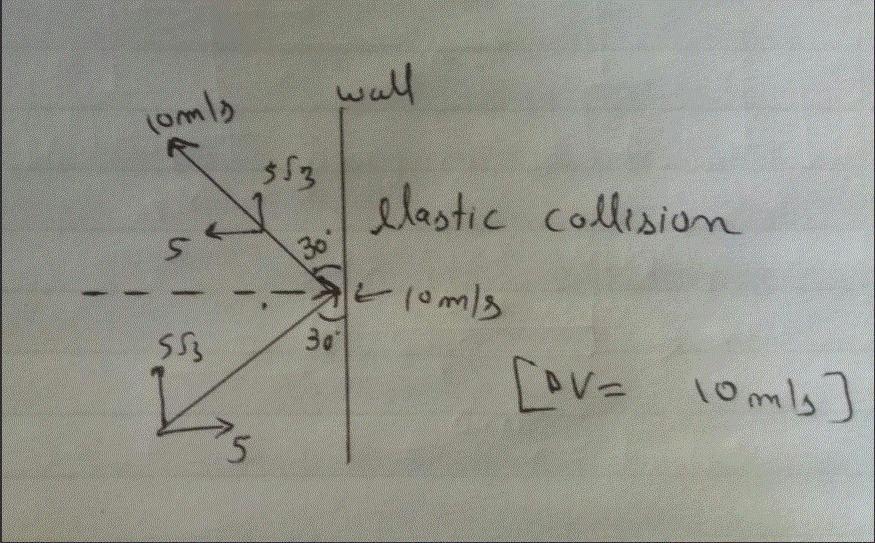 wall
10m/s
5√3
5
30°
Elastic collision
← 10m/s
30°
5√3
5
[ΔV = 10m/s]